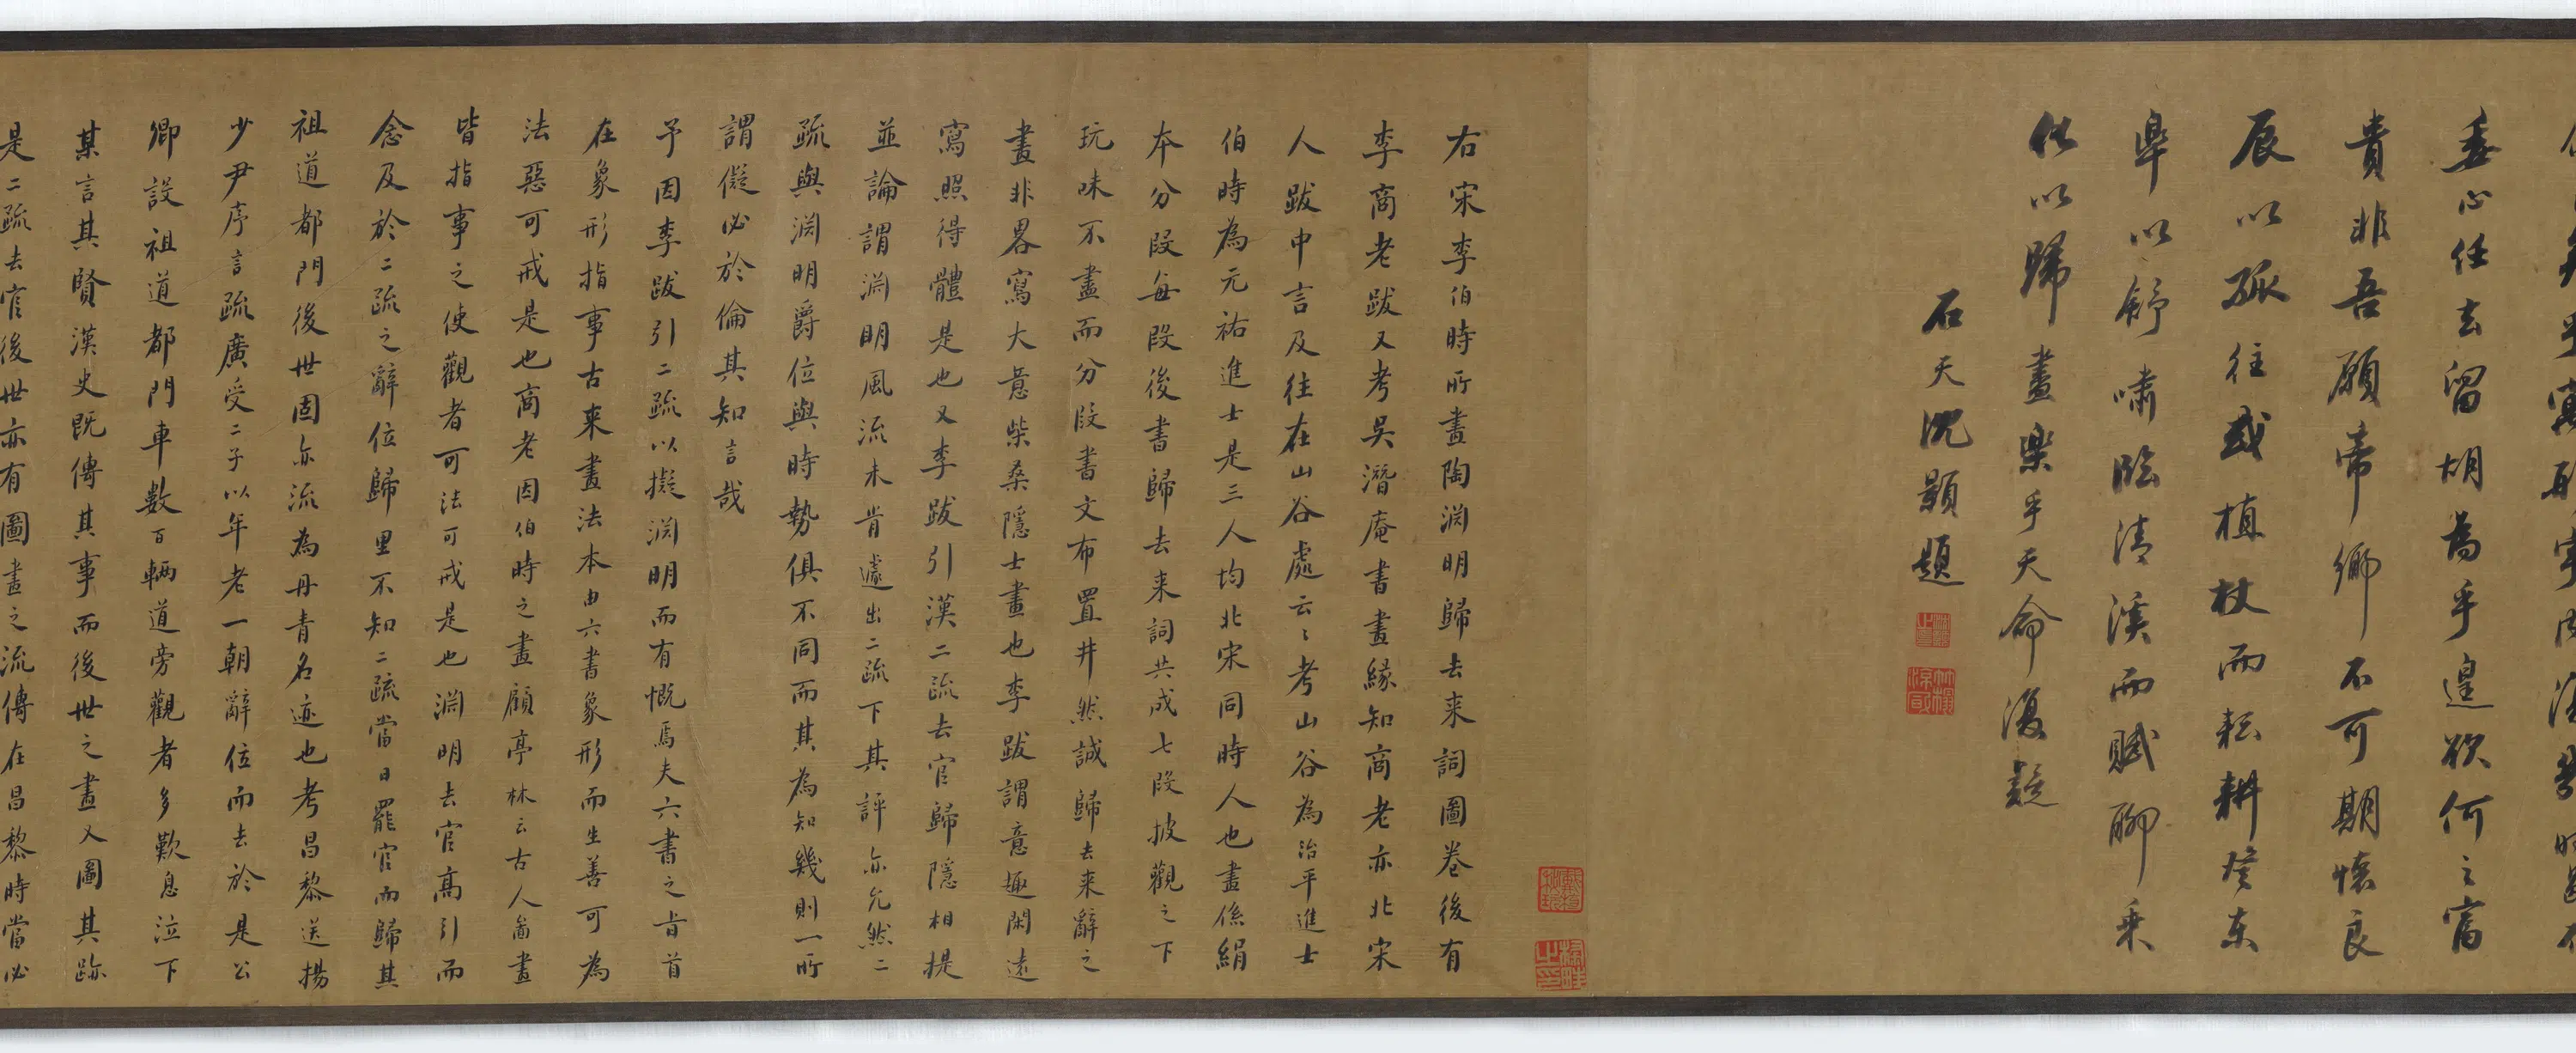 委心任去留胡為乎遑欲何之富
貴非吾願帝鄉不可期懷良
辰以孤往或植杖而耘耕登東
皋以舒嘯臨清溪而賦聊乗
化以歸盡樂乎天命復疑
石天沈顥題
右宋李伯時所畫陶淵明歸去来詞圖卷後有
李商老跋又考吳潛庵書畫緣知商老亦北宋
人跋中言及往在山谷處云々考山谷為治平進士
伯時為元祐進士是三人均北宋同時人也畫係絹
本分段每段後書歸去来詞共成七段披觀之下
玩味不盡而分段書文布置井然誠歸去来辭之
畫非畧寫大意柴桑隱士畫也李跋謂意趣閑遠
寫照得體是也又李跋引漢二疏去官歸隱相提
並論謂淵明風流未肯遽出二疏下其評亦允然二
疏與淵明爵位與時勢俱不同而其為知幾則一所
謂儗必於倫其知言哉
予因李跋引二疏以擬淵明而有慨焉夫六書之旨首
在象形指事古来畫法本由六書象形而生善可為
法惡可戒是也商老因伯時之畫顧亭林云古人啚畫
皆指事之使觀者可法可戒是也淵明去官高引而
念及於二疏之辭位歸里不知二疏當日罷官而歸其
祖道都門後世固亦流為丹青名迹也考昌黎送揚
少尹序言疏廣受二子以年老一朝辭位而去於是公
卿設祖道都門車數百輛道旁觀者多歎息泣下
某言其賢漢史既傳其事而後世之畫又圖其跡
是二疏去官後世亦有圖畫之流傳在昌黎時當必